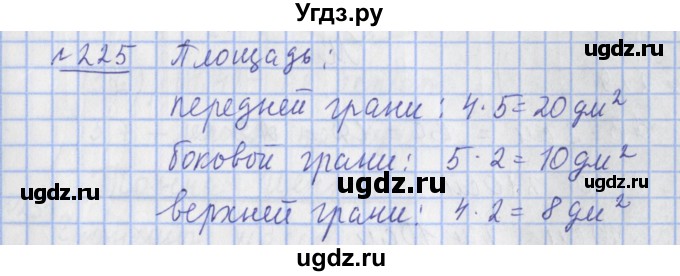 Угдз.ру
№225 Площадь:
ugdz.ru ugdz.ru
передней грани: 4·5=20 дм²
боковой грани: 5·2=10 дм²
ugdz.ru ugdz.ru ugdz.ru
верхней грани: 4·2=8 дм²
ugdz.ru ugdz.ru